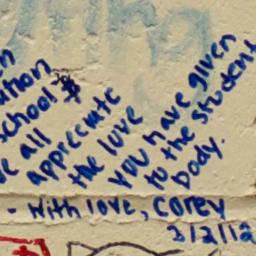 school
all
appreciate
the love
you have given
to the student
body.
- With love, Corey
3/2/12